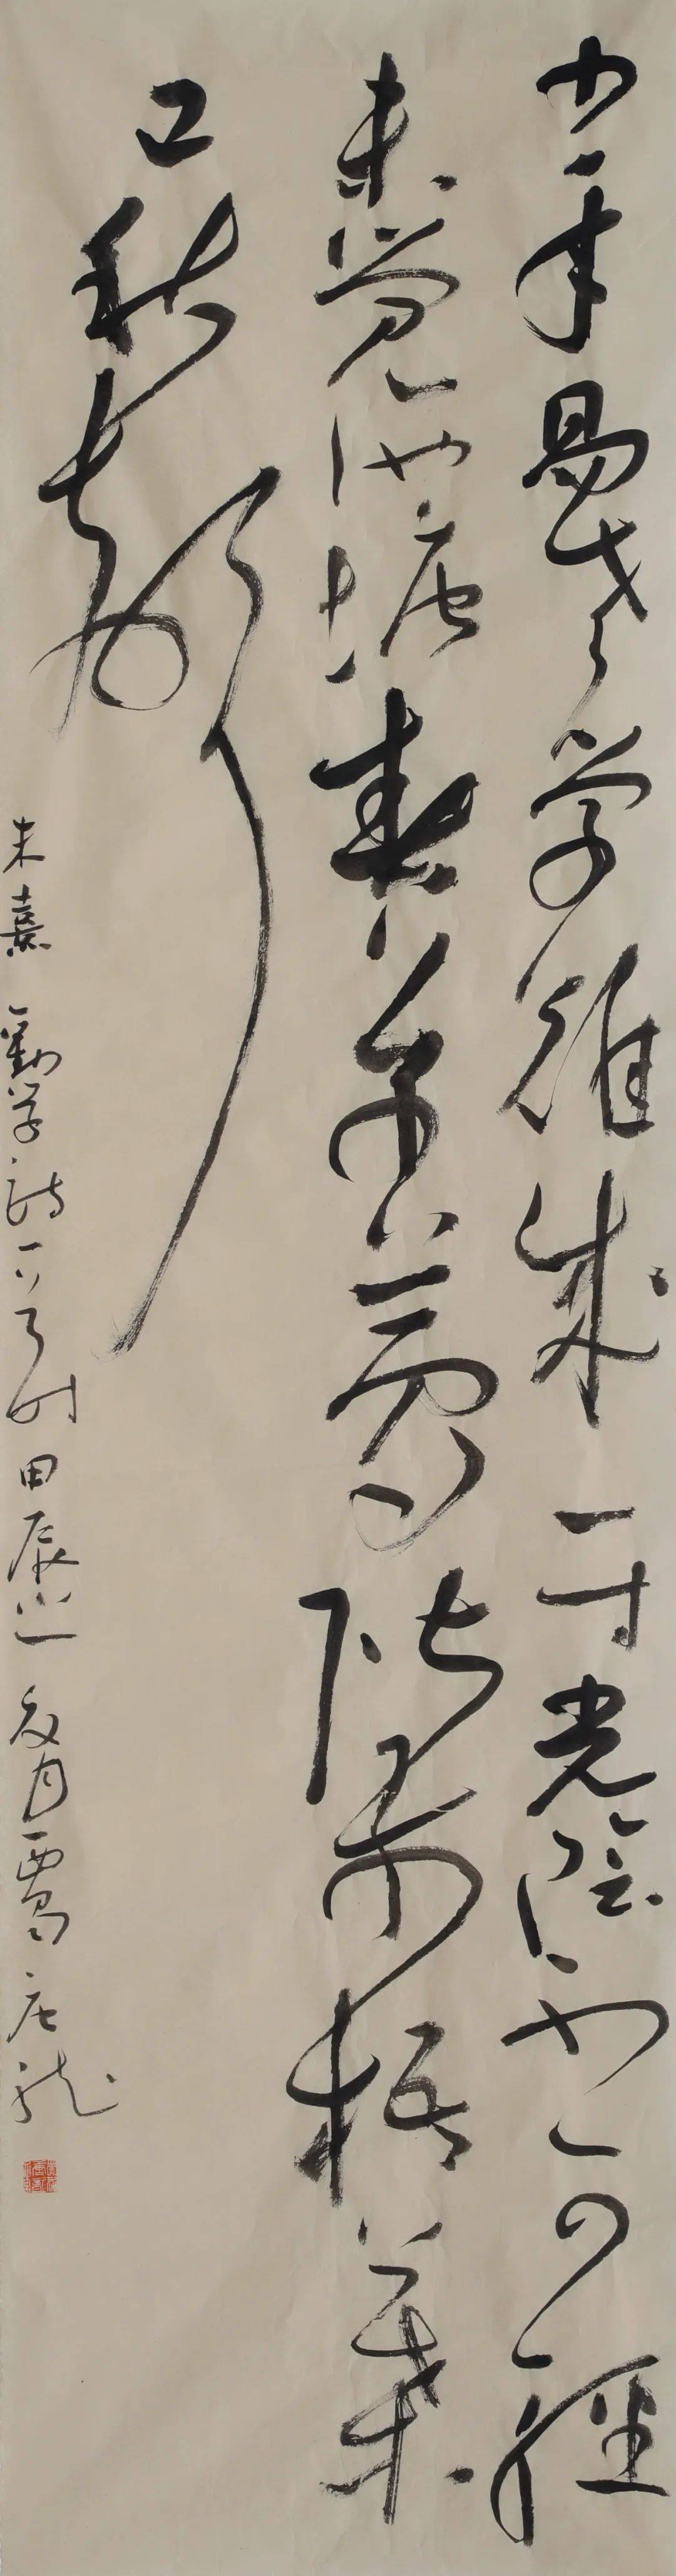 少年易老学难成一寸光阴不可轻
未觉池塘春草梦阶前梧叶
已秋声
朱熹劝学诗一首 时甲辰之夏月 庄龙